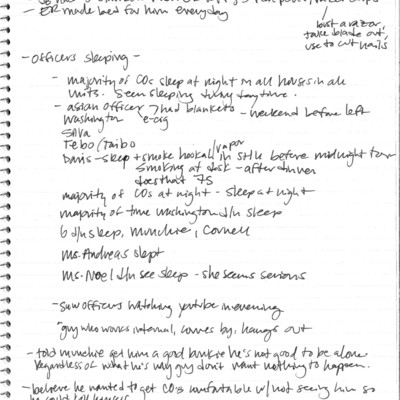 - ER made bed for him everyday
bust a razor,
take blade out,
use to cut nails
- Officers sleeping -
- majority of COs sleep at night on all houses in all
units. Seen sleeping during daytime.
- asian officer > had blankets - weekend before left
Washington e-cig
Silva
Tebo/Taibo /vapor
Davis - sleep + smoke hookah in SHU before midnight tour
smoking at desk - after dinner
does that 7S
majority of COs at night - sleep at night
majority of time Washington d/n sleep
6 d/n sleep, munchie, Cornell
Ms. Andreas slept
Ms. Noel d/n see sleep - she seems serious
- saw officers watching youtube in evening
"guy who works internal, comes by, hangs out
- told munchie get him a good bunkie he's not good to be alone
Regardless of what he's why guy don't want nothing to happen.
- believe he wanted to get COs comfortable w/ not seeing him so